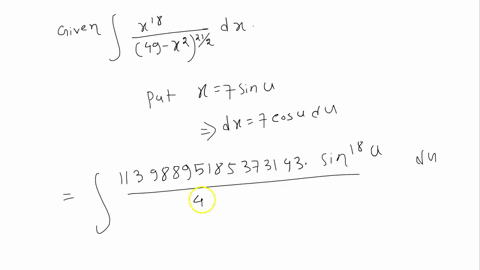 Given ∫ x^18 / (49-x²)^21/2 dx.
Put x = 7 sin u
⇒ dx = 7 cosu du
= ∫ 11398895185373143. sin^18 u / 4 du